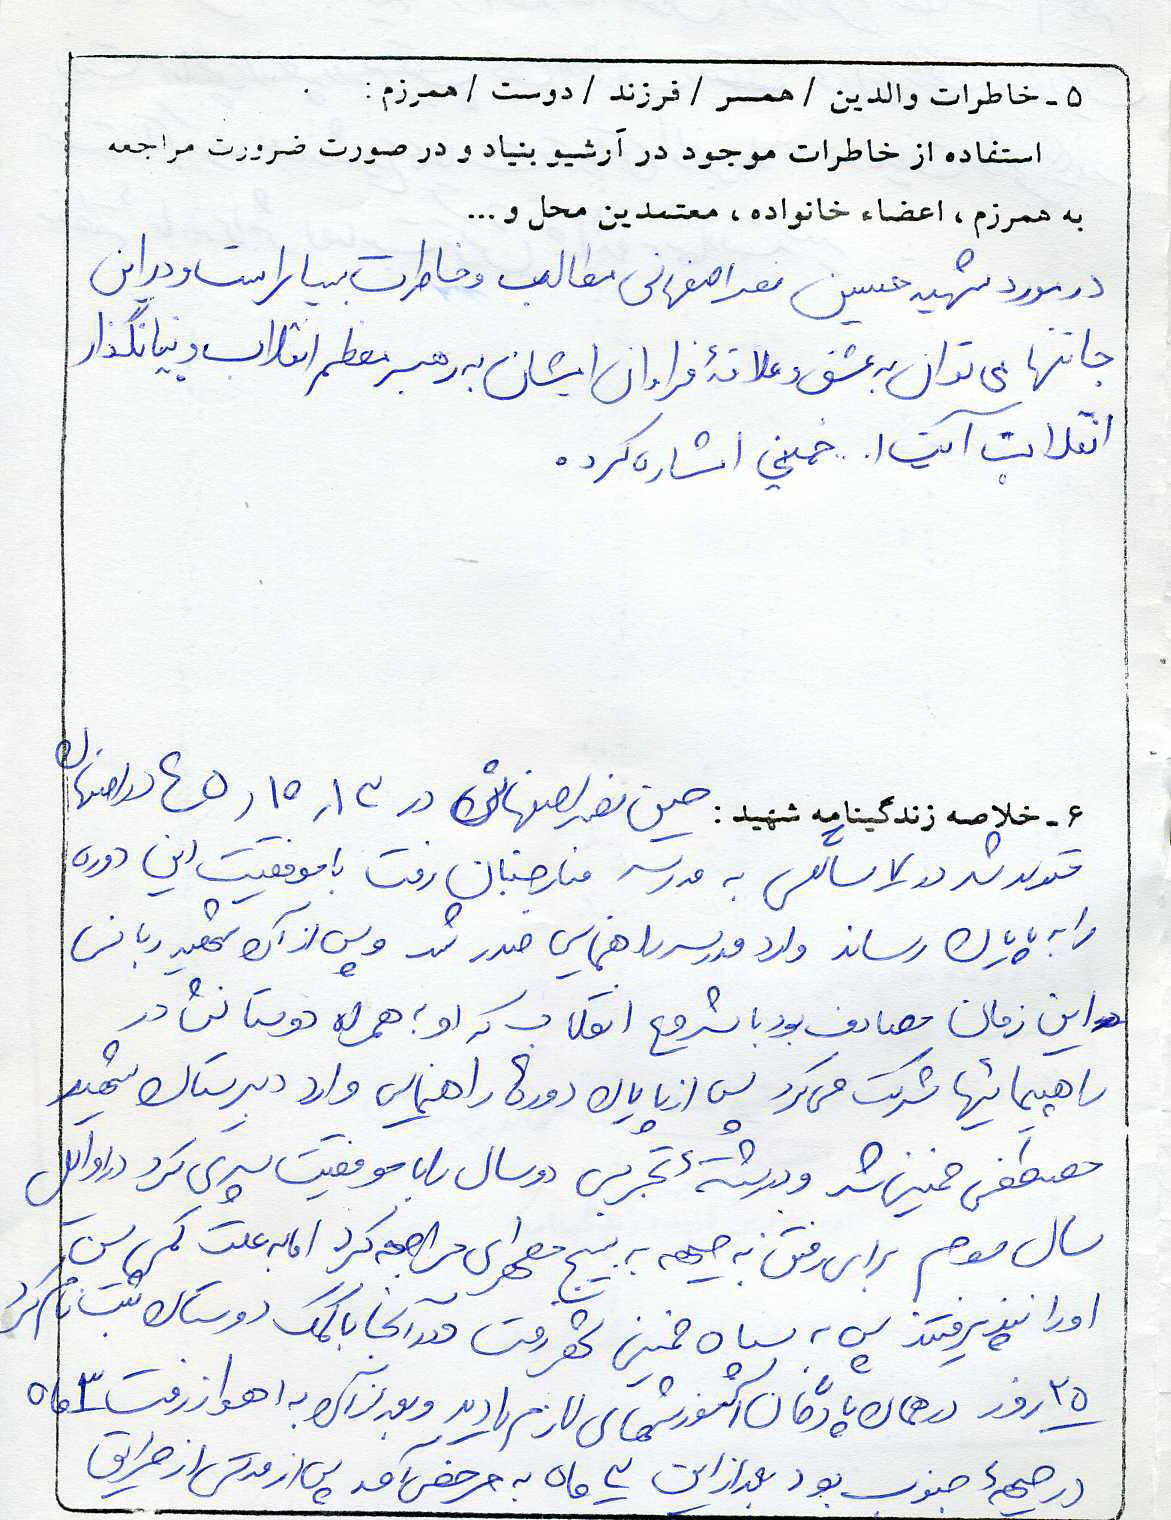 ۵ ـ خاطرات والدین / همسر / فرزند / دوست / همرزم :
استفاده از خاطرات موجود در آرشیو بنیاد و در صورت ضرورت مراجعه
به همرزم ، اعضاء خانواده ، معتمدین محل و ...
در مورد شهید حسین نصر اصفهانی مطالب و خاطرات بسیار است و در این
جا تنها می توان به عشق و علاقهٔ فراوان ایشان به رهبر معظم انقلاب و بنیانگذار
انقلاب آیت ا... خمینی اشاره کرد.
۶ ـ خلاصه زندگینامه شهید : حسین نصر اصفهانی در ۱۳ر ۱۰ر ۴۵ در اصفهان
متولد شد در ۷ سالگی به مدرسه منارجنبان رفت با موفقیت این دوره
را به پایان رساند وارد مدرسه راهنمایی صدر شد و پس از آن شهید ربانی
در این زمان مصادف بود با شروع انقلاب که او به همراه دوستانش در
راهپیمائیها شرکت می کرد پس از پایان دورهٔ راهنمایی وارد دبیرستان شهید
مصطفی خمینی شد و در رشتهٔ تجربی دو سال را با موفقیت سپری کرد در اوایل
سال سوم برای رفتن به جبهه به بسیج مراجعه کرد اما به علت کمی سن
او را نپذیرفتند پس به سپاه خمینی شهر رفت و در آنجا با کمک دوستان ثبت نام کرد
۲۵ روز در همان پادگان آموزشهای لازم را دید و بعد از آن به اهواز رفت ۳ ماه
در جبههٔ جنوب بود بعد از این ۳ ماه به مرخصی آمد پس از مدتی از طریق